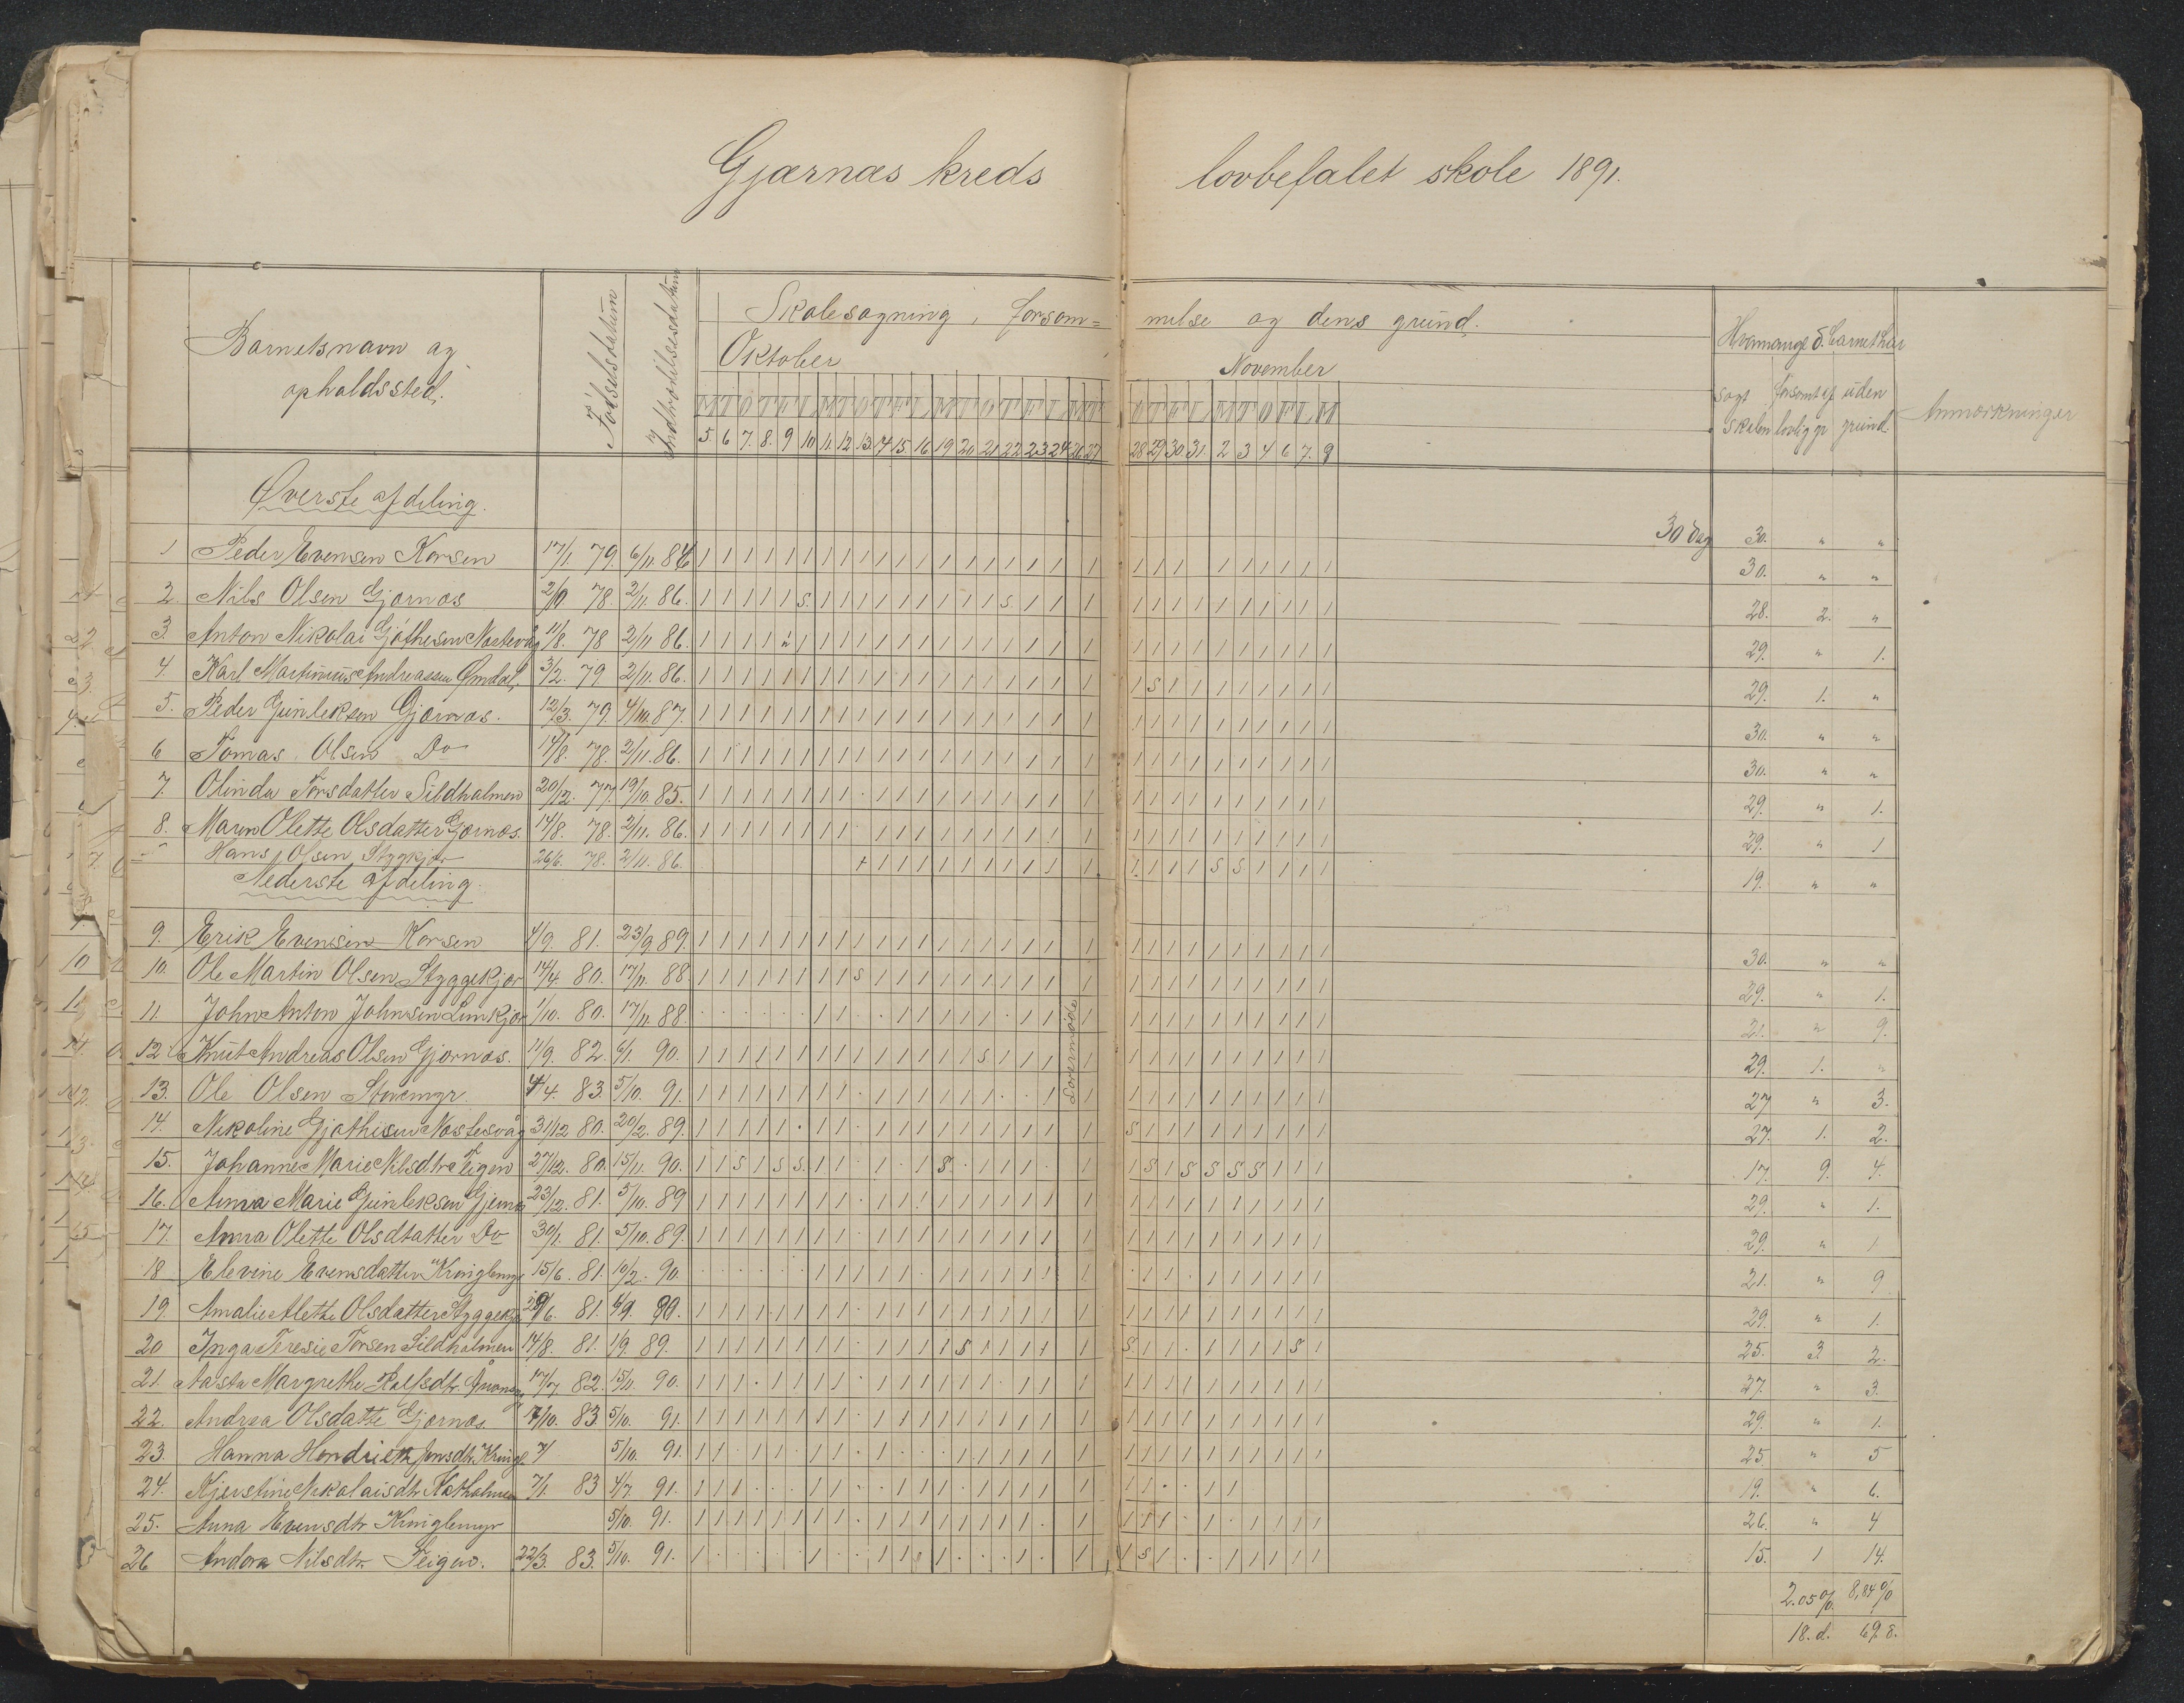 Gjærnæs kreds lovbefalet skole 1891.
Barnets navn og opholdssted.
Fødselsdatum
Indtrædelsesdatum
Skolesøgning, forsøm= melse og dens grund.
Oktober November
Hvormange d. barnet har
søgt skolen forsømt af lovlig gr uden grund
Anmærkninger
5. 6 7. 8. 9 10 11. 12. 13. 14 15. 16. 19 20 21 22 23 24 26 27 28 29 30 31. 2 3 4 6 7. 9
Øverste afdeling.
30 dag
1 Peder Evensen Korsen 17/1. 79. 6/11. 86 30. " "
30. " "
2. Nils Olsen Gjærnæs 2/10 78. 2/11. 86. 28. 2. "
3. Anton Nikolai Gjøthesen Næstevåg 11/8. 78 2/11 86. 29. " 1.
4. Karl Martinius Andreassen Omdal. 3/2. 79 2/11. 86. 29. 1. "
5. Peder Gunleksen Gjærnæs. 12/3. 79. 4/10. 87. 30. " "
6 Tomas Olsen Do 14/8. 78. 2/11. 86. 30. " "
7. Olinda Torsdatter Sildholmen 20/12. 77. 19/10. 85. 29. " 1.
8. Maren Olette Olsdatter Gjærnæs. 14/8. 78. 2/11. 86. 29. " 1
Hans Olsen Styggkjær 26/6. 78. 2/11. 86. 19. " "
Nederste afdeling.
9. Erik Evensen Korsen 4/9. 81. 23/9. 89. 30. " "
10. Ole Martin Olsen Styggekjær 14/4. 80. 17/11. 88. 29. " 1.
11. John Anton Johnsen Lunkjær 1/10. 80. 17/11. 88. 21. " 9.
12 Knut Andreas Olsen Gjærnæs. 11/9. 82. 6/1. 90. 29. 1. "
13. Ole Olsen Storemyr 4/4. 83. 5/10. 91. 27 " 3.
14. Nikoline Gjøthesen Næstesvåg 31/12 80. 20/2. 89. 27. 1. 2.
15. Johanne Marie Nilsdtr Teigen 27/12. 80. 15/11. 90. 17. 9. 4.
16. Anna Marie Gunleksen Gjærnæs 23/12. 81. 5/10. 89 29. " 1.
17. Anna Olette Olsdtatter Do 30/1. 81. 5/10. 89. 29. " 1
18 Elevine Evensdatter Kringlemyr 15/6. 81. 10/2. 90. 21. " 9
19. Amalie Alette Olsdatter Styggekjær 29/6. 81. 6/9. 90. 29. " 1.
20 Inga Teresie Torsen Sildholmen 14/8. 81. 1/9. 89. 25. 3 2.
21. Aasta Margrethe Rolfsdtr. 17/7 82. 15/11. 90. 27. " 3.
22. Andrea Olsdatte Gjærnæs 7/10. 83 5/10. 91. 29. " 1.
23. Hanna Hendriette Jensdtr. Kringl. 7/ 5/10. 91. 25 " 5
24. Kjerstine Nikolaisdtr Katholmen 7/1. 83 4/7. 91. 19. " 6.
25. Anna Evensdtr Kringlemyr 5/10. 91. 26. " 4
26 Andora Nilsdtr. Teigen. 22/3. 83. 5/10. 91. 15. 1 14.
Lærermøde
2.05% 8,84%
18. d. 69. d.